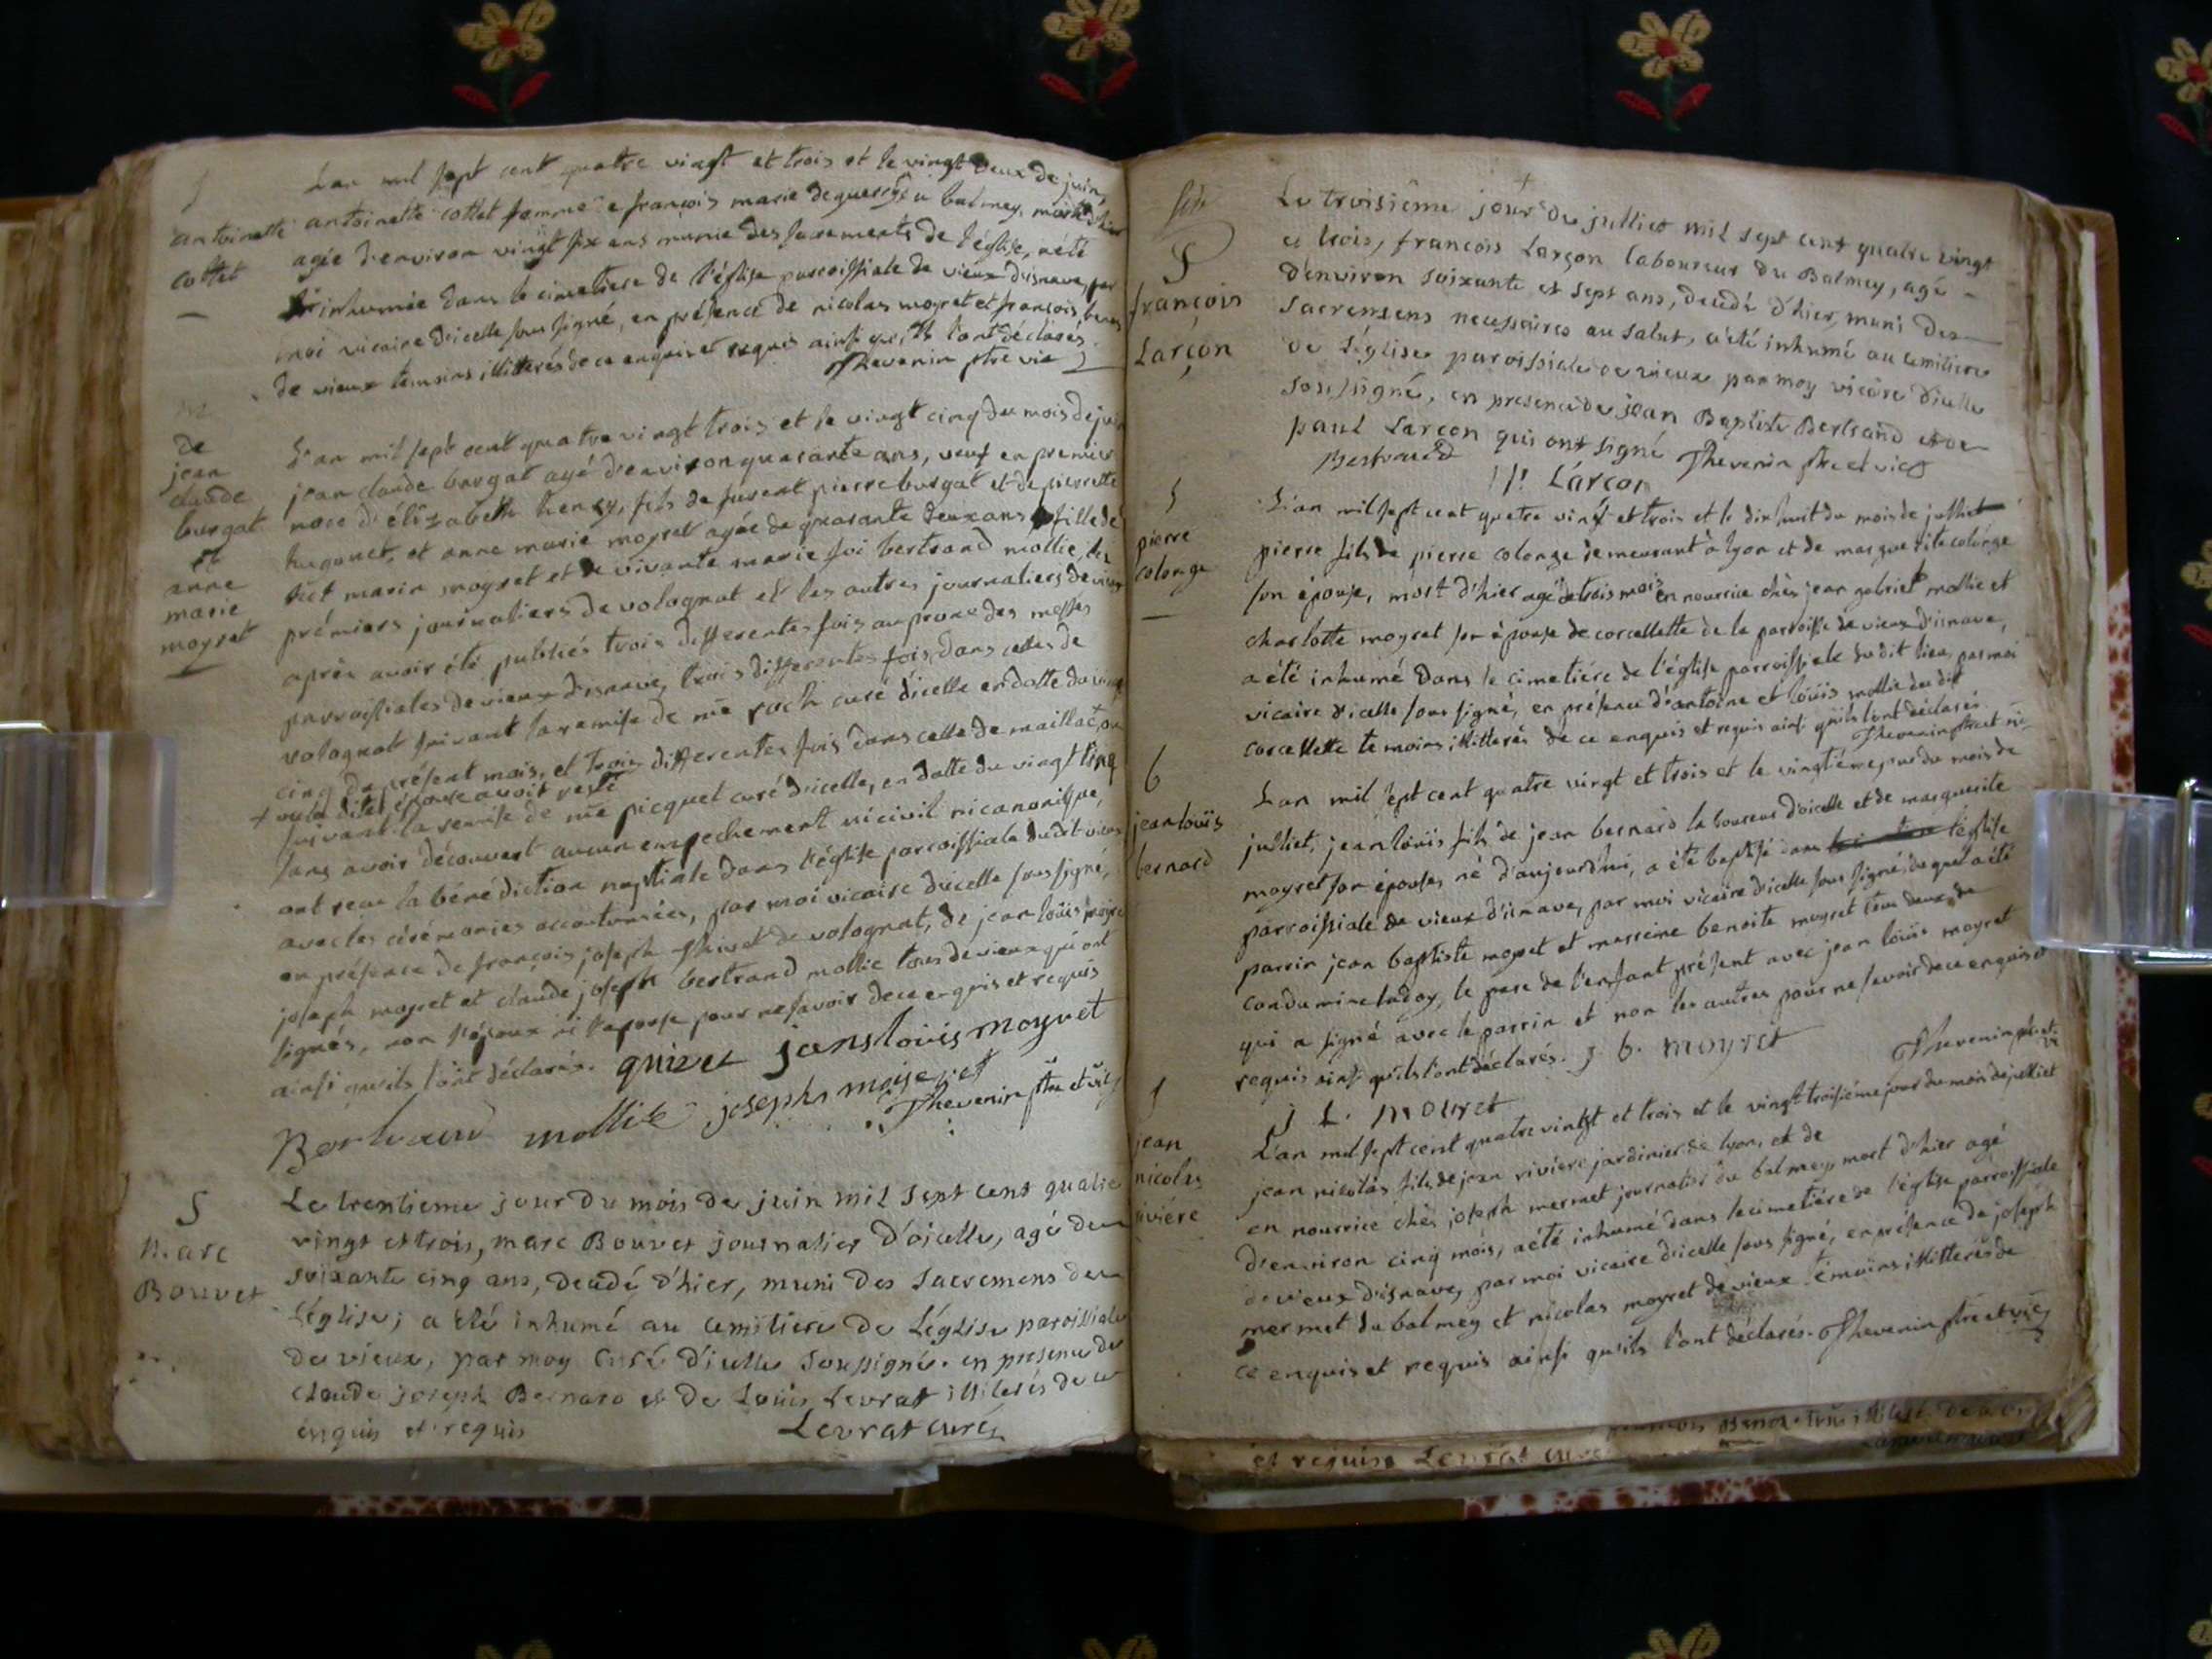 S
antoinette
cottet
Lan mil sept cent quatre vingt et trois et le vingt deux de juin,
antoinette cottet femme de françois marie du balmey, morte hier
agée d'environ vingt six ans munie des sacrements de l'église, a été
inhumée dans le cimetiere de l'église parroissiale de vieux d'isnave, par
moi vicaire d'icelle sous signé, en présence de nicolas moyret et françois
de vieux temoins illitterés de ce enquis et requis ainsi qu'ils l'ont déclarés.
Thevenin ptre vic
M
de
jean
claude
burgat
et
anne
marie
moyret
L'an mil sept cent quatre vingt trois et le vingt cinq du mois de juin
jean claude burgat agé d'environ quarante ans, veuf en premier
noce d'élizabeth, fils de furent pierre burgat et de pierrette
hugonet, et anne marie moyret agée de quarante deux ans fille de
marin moyret et de vivante marie bertrand mollie, les
prémiers journaliers de volognat et les autres journaliers de vieux
après avoir été publiés trois differentes fois au prone des messes
parroissiales de vieux d'isnave, trois differentes fois dans celles de
volognat suivant la remise de mre roch curé d'icelle en datte du vingt
cinq du présent mois, et trois differentes fois dans celle de maillat, ou
+ ou la dite épouse avoit resté
suivant la remise de mre picquet curé d'icelle, en datte du vingt cinq
sans avoir découvert aucun empechement ni civil ni canonique,
ont recu la bénédiction nuptiale dans l'église parroissiale du dit vieux
avec les cérémonies accoutumées, par moi vicaire d'icelle sous signé,
en présence de françois joseph de volognat, de jean louis moyret
joseph moyret et claude joseph bertrand mollie tous de vieux qui ont
signés, non l'époux ni l'epouse pour ne savoir de ce enquis et requis
ainsi qu'ils l'ont déclarés. jans louis moyret
Bertrand mollie joseph moiseret
Thevenin ptre et vic
S
Marc
Bouvet
Le trentieme jour du mois de juin mil sept cent quatre
vingt et trois, marc Bouvet journalier d'oicelle, agé de
soixante cinq ans, decedé d'hier, muni des Sacremens de
L'église; a été inhumé au cemitiere de L'église paroissiale
de vieux, par moy Curé d'icelle soussigné. en presence de
claude joseph Bernard et de Louis Levrat illiterés de ce
enquis et requis
Levrat curé
S
françois
Larçon
Le troisiême jour du julliet mil sept cent quatre vingt
et trois, francois Larçon laboureur du Balmey, agé
d'environ soixante et sept ans, decedé d'hier, muni des
sacremens necessaires au salut, a été inhumé au cemitiere
de L'église paroissiale de vieux par moy vicaire d'icelle
soussigné, en presence de jean Baptiste Bertrand et de
paul Larcon qui ont signé Thevenin ptre et vic
Bertrand
P. Larcon
S
pierre
colonge
L'an mil sept cent quatre vingt et trois et le dix huit du mois de julliet
pierre fils de pierre colonge demeurant à lyon et de marguerite colonge
son épouse, mort d'hier agé de trois mois en nourrice chès jean gabriel mollie et
charlotte moyret son épouse de corcellette de la parroisse de vieux d'isnave,
a été inhumé dans le cimetiére de l'église parroissiale du dit lieu, par moi
vicaire d'icelle sous signé, en présence d'antoine et loüis mollie du dit
corcellette temoins illitterés de ce enquis et requis ainsi qu'ils l'ont déclarés
Thevenin ptre et vic
b
jean loüis
bernard
Lan mil sept cent quatre vingt et trois et le vingtiéme jour du mois de
julliet, jean loüis fils de jean bernard laboureur d'oicelle et de marguerite
moyret son épouse, né d'aujourd'hui, a été baptisé dans l'église
parroissiale de vieux d'isnave, par moi vicaire d'icelle sous signé, duquel a été
parrin jean baptiste moyret et marreine benoite moyret tous deux de
condamine ladoy, le pere de l'enfant présent avec jean loüis moyret
qui a signé avec le parrin et non les autres pour ne savoir de ce enquis et
requis ainsi qu'ils l'ont déclarés. J. b. moyret
Thevenin ptre et vic
j L. Moyret
S
jean
nicolas
riviére
L'an mil sept cent quatre vingt et trois et le vingt troisiéme jour du mois de julliet
jean nicolas fils de jean riviere jardinier de lyon, et de
en nourrice chès joseph mermet journalier du balmey, mort d'hier agé
d'environ cinq mois, a été inhumé dans le cimetiére de l'église parroissiale
de vieux d'isnave, par moi vicaire d'icelle sous signé, en présence de joseph
mermet du balmey et nicolas moyret de vieux témoins illitterés de
ce enquis et requis ainsi qu'ils l'ont déclarés. Thevenin ptre et vic
et requis Levrat curé